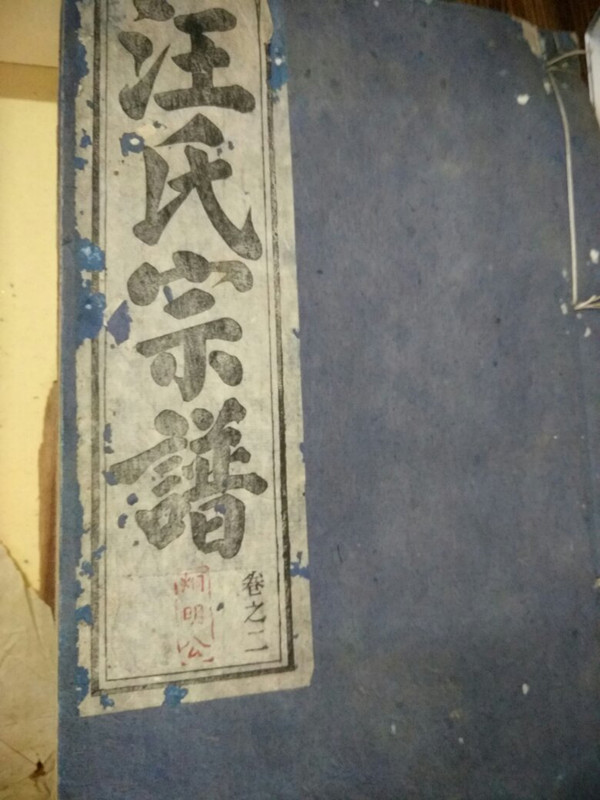 汪氏宗譜
卷之二
炯明公